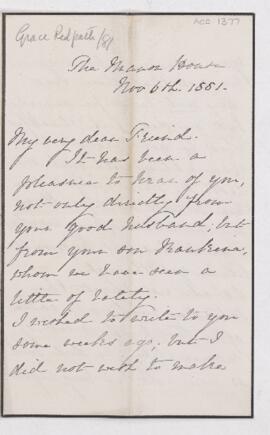 Grace Redpath / 81
ACC 1377
The Manor House
Nov 6th. 1881.
My very dear Friend.
It has been a
pleasure to hear of you,
not only directly from
your good husband, but
from your son
whom we have seen a
little of lately.
I wished to write to you
some weeks ago, but I
did not wish to make